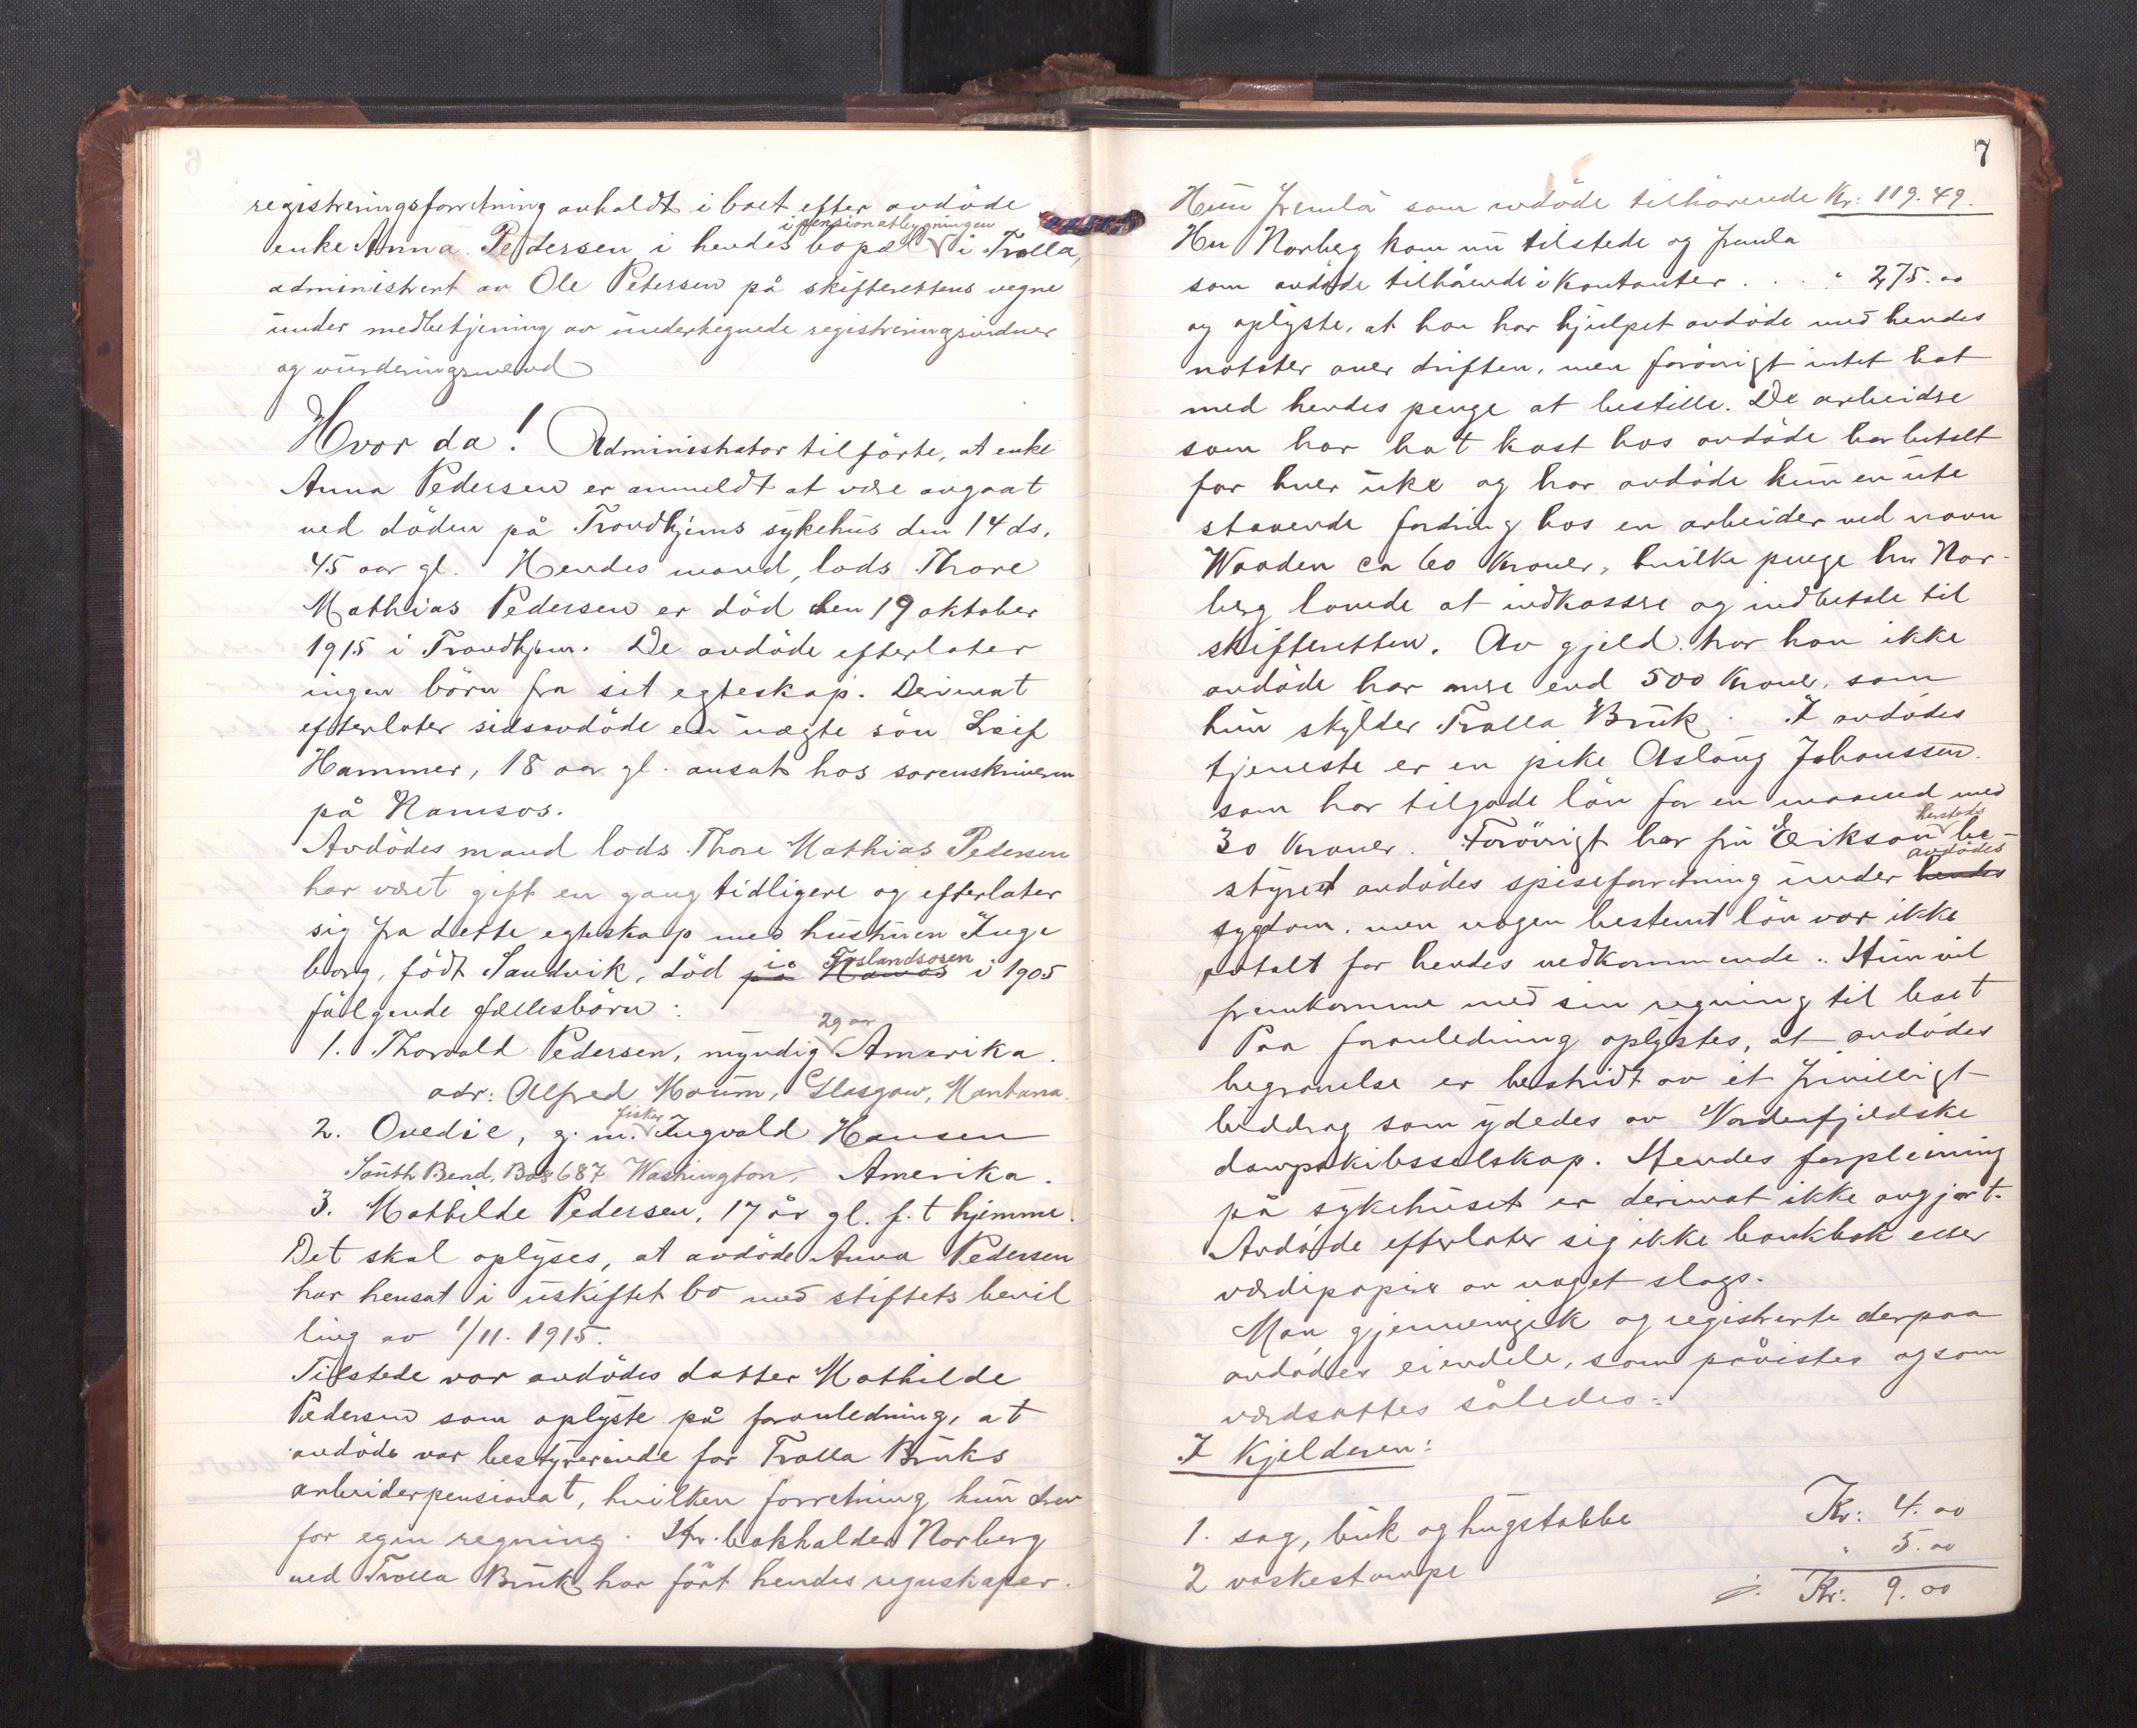 registreringsforretning avholdt i boet efter avdöde
i pensionatbygningen
enke Anna Pedersen i hendes bopæl i Trolla,
administrert av Ole Petersen på skifterettens vegne
under medbetjening av undertegnede registreringsvidner
og vurderingsmænd
Hvor da! Administrator tilförte, at enke
Anna Pedersen er anmeldt at være avgaat
ved döden på Trondhjems sykehus den 14 ds.
45 aar gl. Hendes mand, lods Thore
Mathias Pedersen er död den 19 oktober
1915 i Trondhjem. De avdöde efterlater
ingen börn fra sit egteskap. Derimot
efterlater sidstavdöde en uægte sön Leif
Hammer, 18 aar gl. ansat hos sorenskriveren
på Namsos.
Avdödes mand lods Thore Mathias Pedersen
har været gift en gang tidligere og efterlater
sig fra dette egteskap med hustruen Inge
borg, födt Sandvik, död på i i 1905
fölgende fællesbörn:
29 aar
1. Thorvald Pedersen, myndig Amerika.
adr: Alfred Moum, Glasgow, Montana.
fisker
2. Ovedie, g. m. Ingvald Hansen
South Bend, Box 687 Washington, Amerika.
3. Mathilde Pedersen, 17 år gl. f. t hjemme.
Det skal oplyses, at avdöde Anna Pedersen
har hensat i uskiftet bo med stiftets bevil
ling av 1/11. 1915.
Tilstede var avdödes datter Mathilde
Pedersen som oplyste på foranledning, at
avdöde var bestyrerinde for Trolla Bruks
arbeiderpensionat, hvilken forretning hun drev
for egen regning. Hr. bokholder Norberg
ved Trolla Bruk har fört hendes regnskaper.
7
Hun fremla som avdöde tilhörende Kr: 119.49.
Hr Norberg kom nu tilstede og fremla
som avdöde tilhörende i Kontanter . . . " 275.00
og oplyste, at han har hjulpet avdöde med hendes
notater over driften, men forövrigt intet hat
med hendes penge at bestille. De arbeidre
som har hat kost hos avdöde har betalt
for hver uke og har avdöde kun en ute
staaende fordring hos en arbeider ved navn
Waaden ca 60 Kroner, hvilke penge hr Nor-
berg lovede at indkassere og indbetale til
skifteretten. Av gjeld tror han ikke
avdöde har mere end 500 Kroner, som
hun skylder Trolla Bruk. I avdödes
tjeneste er en pike Aslaug Johanssen
som har tilgode lön for en maaned med
hersteds
30 Kroner. Forövrigt har fru Erikson be-
avdödes
styret avdödes spiseforretning under hendes
sygdom, men nogen bestemt lön var ikke
avtalt for hendes vedkommende. Hun vil
fremkomme med sin regning til boet
Paa foranledning oplystes, at avdödes
begravelse er bestridt av et frivilligt
biddrag som ydedes av Nordenfjeldske
dampskibsselskap. Hendes forpleining
på sykehuset er derimot ikke avgjort.
Avdöde efterlater sig ikke bankbok eller
værdipapirer av noget slags.
Man gjennemgik og registrerte derpaa
avdödes eiendele, som påvistes og som
værdsattes således:
I Kjelderen:
1. sag, buk og hugstabbe Kr: 4.00
2 vaskestampe " 5.00
Kr: 9.00